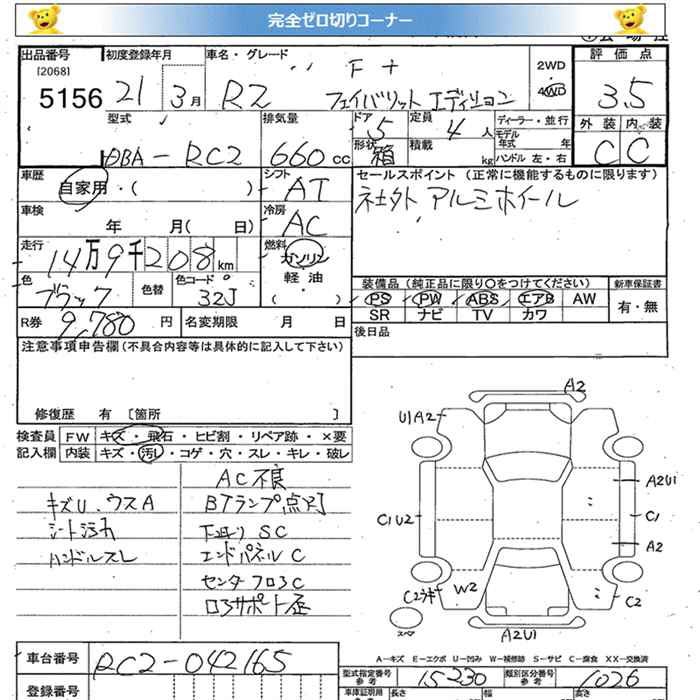 完全ゼロ切りコーナー
出品番号 初度登録年月 車名・グレード 2WD 評価点
[2068] F+ 4WD
5156 21 3月 R2 フェイバリットエディション 3.5
型式 排気量 ドア 5 定員 4 人 ディーラー・並行 外装 内装
モデル年式 年
DBA-RC2 660 cc 形状 箱 積載 kg ハンドル 左・右 C C
車歴 シフト セールスポイント (正常に機能するものに限ります)
自家用・( ) AT 社外 アルミホイール
車検 年 月( 日) 冷房 AC
走行 14万9千208km 燃料 ガソリン
軽油
色 ブラック 色替 色コード 32J ( ・ )
装備品 (純正品に限り○をつけてください) 新車保証書
PS PW ABS エアB AW 有・無
SR ナビ TV カワ
R券 9,780 円 名変期限 月 日 後日品
注意事項申告欄(不具合内容等は具体的に記入して下さい)
修復歴 有 [箇所 ]
検査員 FW キズ・飛石・ヒビ割・リペア跡・×要
記入欄 内装 キズ・汚レ・コゲ・穴・スレ・キレ・破レ
AC不良
キズU.ウスA BTランプ点灯
シート汚れ 下廻りSC
ハンドルスレ エンドパネルC
センターフロアC
ロアサポート歪
A2
U1A2
A2U1
C1U2 C1
A2
W2 C2
スペア
A2U1
A-キズ E-エクボ U-凹み W-補修跡 S-サビ C-腐食 XX-交換済
車台番号 RC2-042165
型式指定番号 参考 15230 類別区分番号 参考 1026
登録番号 車庫証明用 長さ 幅 高さ